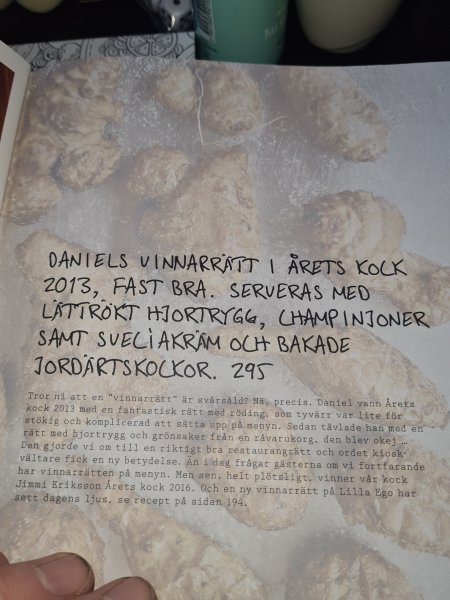 DANIELS VINNARRÄTT I ÅRETS KOCK
2013, FAST BRA. SERVERAS MED
LÄTTRÖKT HJORTRYGG, CHAMPINJONER
SAMT SVECIAKRÄM OCH BAKADE
JORDÄRTSKOCKOR. 295
Tror ni att en "vinnarrätt" är svårsåld? Nä, precis. Daniel vann Årets
kock 2013 med en fantastisk rätt med röding, som tyvärr var lite för
stökig och komplicerad att sätta upp på menyn. Sedan tävlade han med en
rätt med hjortrygg och grönsaker från en råvarukorg, den blev okej …
Den gjorde vi om till en riktigt bra restaurangrätt och ordet kiosk-
vältare fick en ny betydelse. Än i dag frågar gästerna om vi fortfarande
har vinnarrätten på menyn. Men sen, helt plötsligt, vinner vår kock
Jimmi Eriksson Årets kock 2016. Och en ny vinnarrätt på Lilla Ego har
sett dagens ljus, se recept på sidan 194.